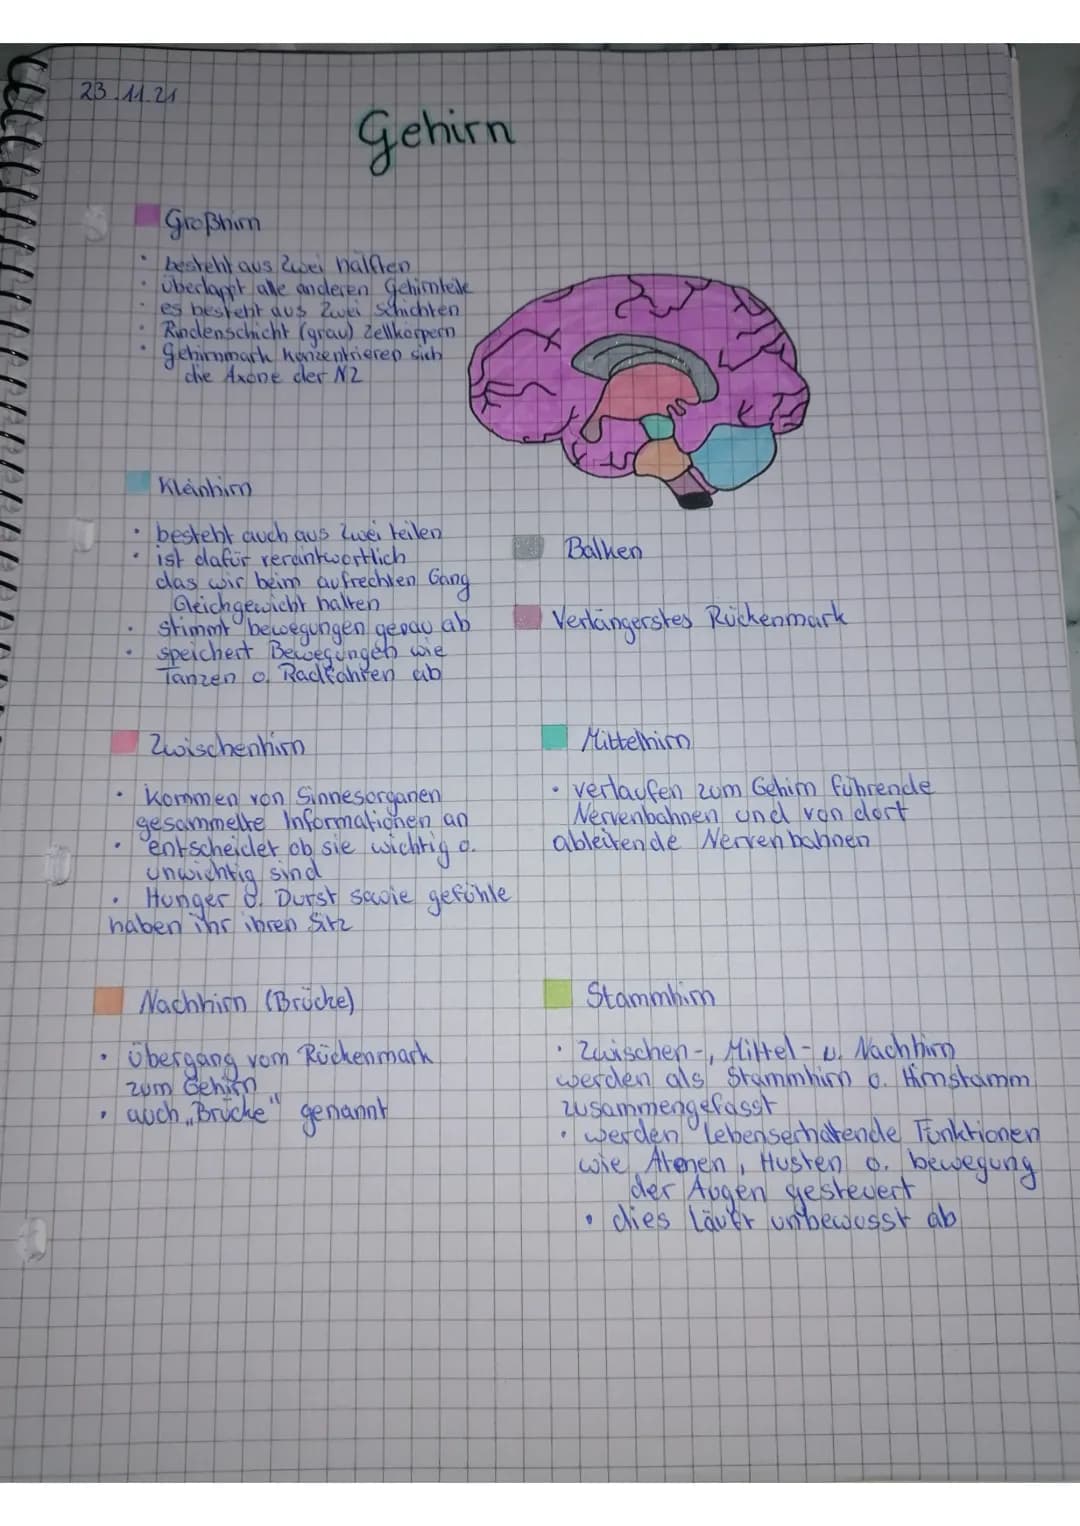 23.11.21
Gehirn
Großhirn
• besteht aus zwei hälften
• überlappt alle anderen Gehirnteile
• es besteht aus zwei schichten
• Rindenschicht (grau) Zellkörpern
• Gehirnmark konzentrieren sich
die Axone der NZ
Kleinhirn
• besteht auch aus zwei teilen
• ist dafür verantwortlich
das wir beim aufrechten Gang
Gleichgewicht halten
• stimmt bewegungen genau ab
• speichert Bewegungen wie
Tanzen o. Radfahren ab
Balken
Verlängerstes Rückenmark
Zwischenhirn
• kommen von Sinnesorganen
gesammelte Informationen an
• entscheidet ob sie wichtig o.
unwichtig sind
• Hunger o. Durst sowie gefühle
haben ihr ihren Sitz
Mittelhirn
• verlaufen zum Gehirn führende
Nervenbahnen und von dort
ableitende Nervenbahnen
Nachhirn (Brücke)
• Übergang vom Rückenmark
zum Gehirn
• auch „Brücke" genannt
Stammhirn
• Zwischen-, Mittel- u. Nachhirn
werden als Stammhirn o. Hirnstamm
zusammengefasst
• werden lebenserhaltende Funktionen
wie Atmen, Husten o. bewegung
der Augen gesteuert
• dies läuft unbewusst ab